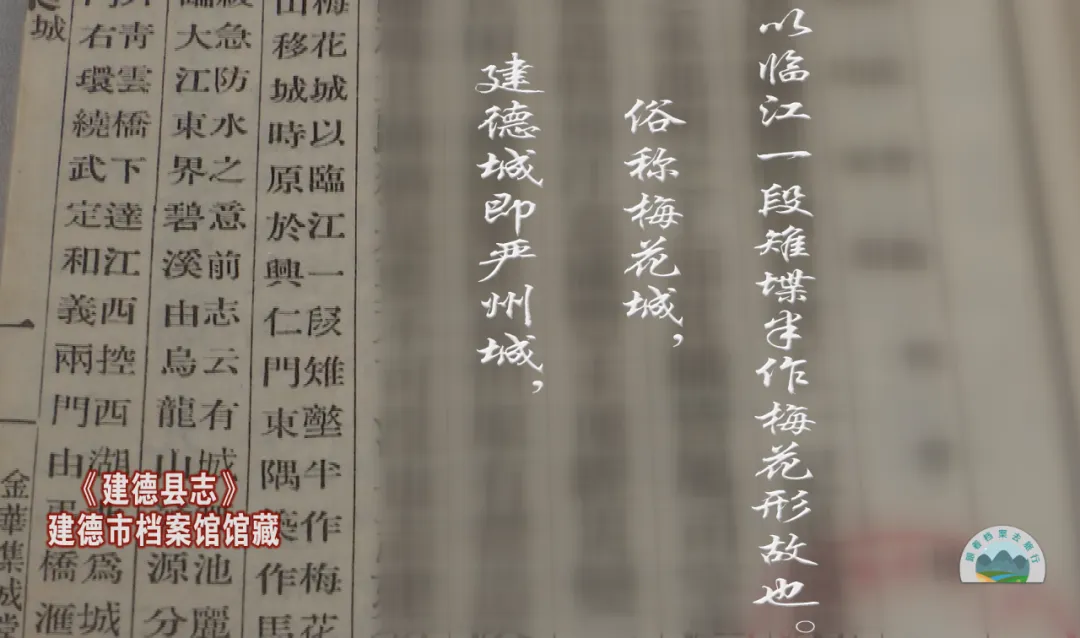 建德城即严州城,
俗称梅花城,
以临江一段雉堞半作梅花形故也。
梅花城以臨江一段雉堞半作梅花
山移城時原於興仁門東隅築作馬
急防水之意前志云有城池麗
大江東界碧溪由烏龍山源分
青雲橋下達江西控西湖為城
門右環繞武定和義兩門由橋滙
城
一
金華集成堂
《建德县志》
建德市档案馆馆藏
跟着档案去旅行